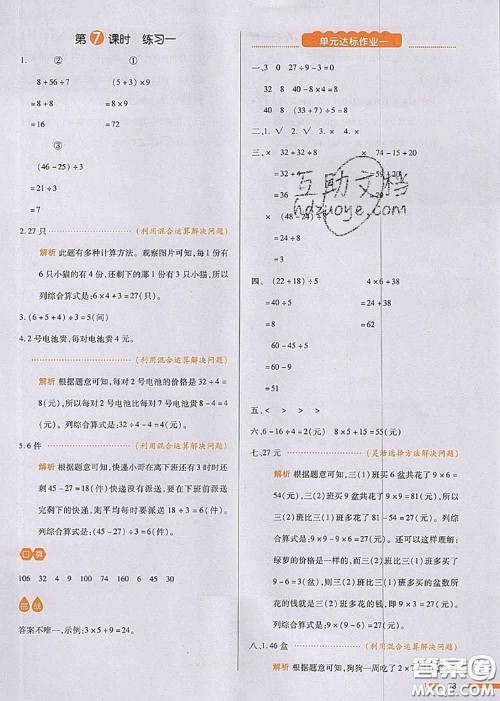 第7课时 练习一
1. ② ①
8+56÷7 (24-8)×1
=8+8
=16 =72
③
(46-25)÷3
=21÷3
=7
2.27只 (利用混合运算解决问题)
解析 此题有多种计算方法。观察图片可知,每1份有
6只小猫的有4份,还剩下的那1份有3只小猫,所以
列综合算式是:6×4+3=27(只)。
3.(6+54)÷6+3)÷5=3(间)
4.2号电池贵,每对电池贵4元。
(利用混合运算解决问题)
解析 根据题意可知,每对2号电池的价格是32÷4=
8(元),所以每对2号电池比每对5号电池贵8-4=
4(元),所以列综合算式是:32÷8-4=4(元)。
5.6件 (利用混合运算解决问题)
解析 根据题意可知,快递小哥在离下班还有3时时
还有45-27=18(件)快递没有派送,要在下班前派送
完剩下的快递,则每时至少派送18÷3=6(件)。所以
列综合算式是:(45-27)÷3=6(件)。
口算
106 32 4 9 110 60 74 130 16 30
挑战
答案不唯一,示例:3×5+9=24。
单元达标作业一
一、3 0 27÷9-3=0
32 8 40-8×4=8
40 8 (33+7)÷5=8
二、1.√ 2.√ 3.×
三、× 32+32÷8 × 74-15+20
=32+4 =59+20
=36 =79
× (48-24)÷3
=24÷3
=8
四、(22+18)÷5 4×6+38
=40÷5 =24+38
=8 =62
60-45÷5
=60-9
=51
五、< > > =
六、6-16÷4=2(元) 8×5+15=55(元)
七、27元 (灵活选择方法解决问题)
解析 根据题意可知,三(1)班买6盆共花了9×6=
54(元),三(2)班买9盆共花了9×9=81(元),所以
三(2)班比三(1)班多花了81-54=27(元)。列综
合算式是:9×9-9×6=27(元)。还可以这样理解:
绿萝的价格是一样的,三(2)班比三(1)班多买了
9-6=3(盆),则三(2)班比三(1)班多买的盆数所
花的钱就是三(2)班比三(1)班多花的钱,列综合算
式是:9×(9-6)=27(元)。
八、1.46盒 (利用混合运算解决问题)
解析 根据题意可知,狗狗一周吃了2×7
互助文档
hdzuoye.com
答案圈
MXQE.COM